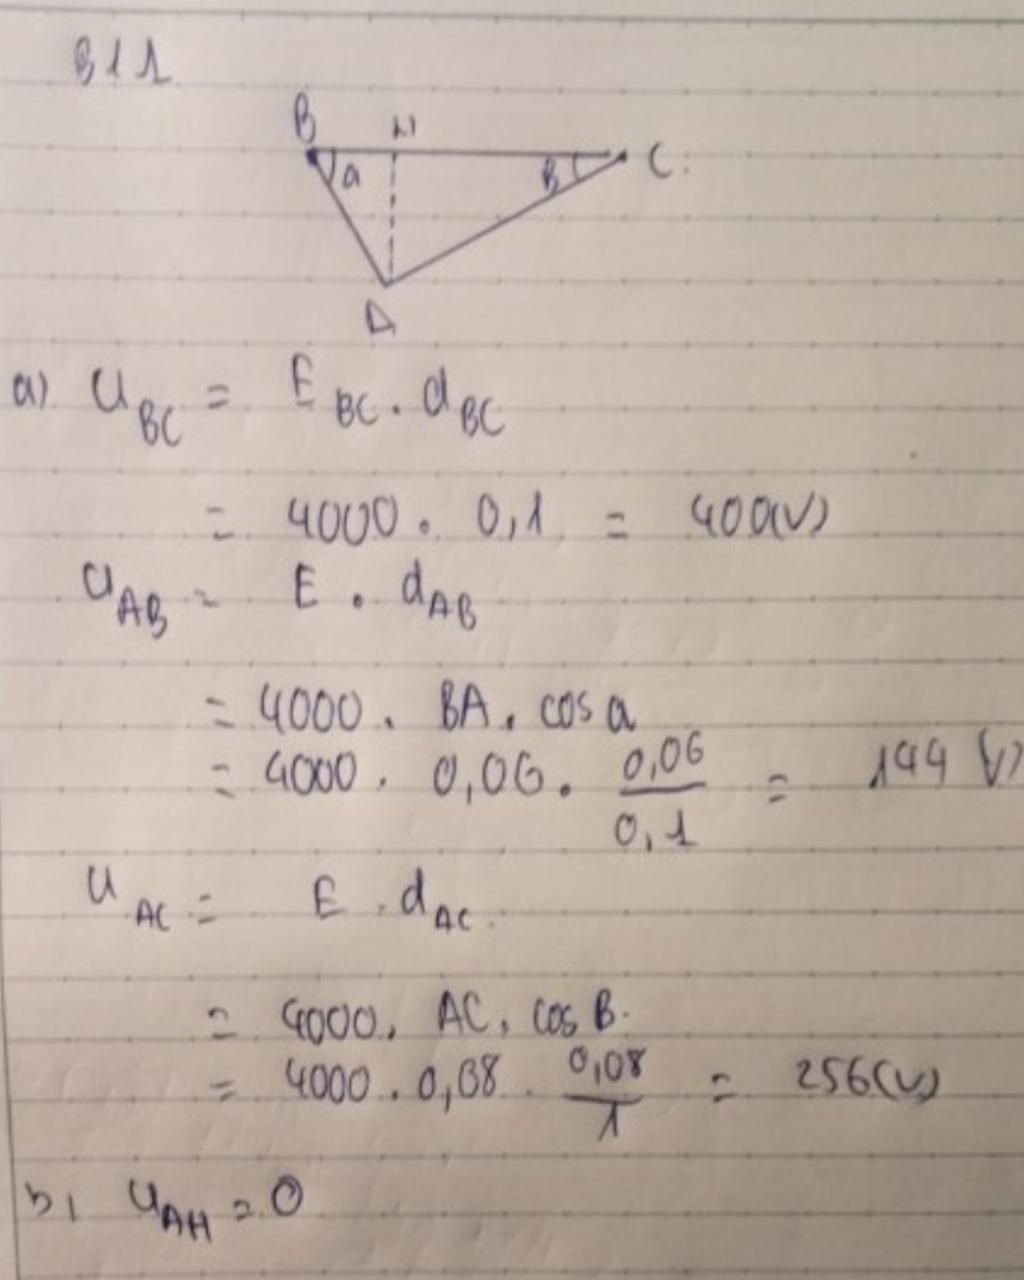 B11
B H
a B C.
A
a) U_BC = E_BC . d_BC
= 4000 . 0,1 = 400(V)
U_AB = E . d_AB
= 4000 . BA . cos a
= 4000 . 0,06 . 0,06/0,1 = 144 (V)
U_AC = E . d_AC.
= 4000 . AC . cos B.
= 4000 . 0,08 . 0,08/1 = 256(V)
b, U_AH = 0